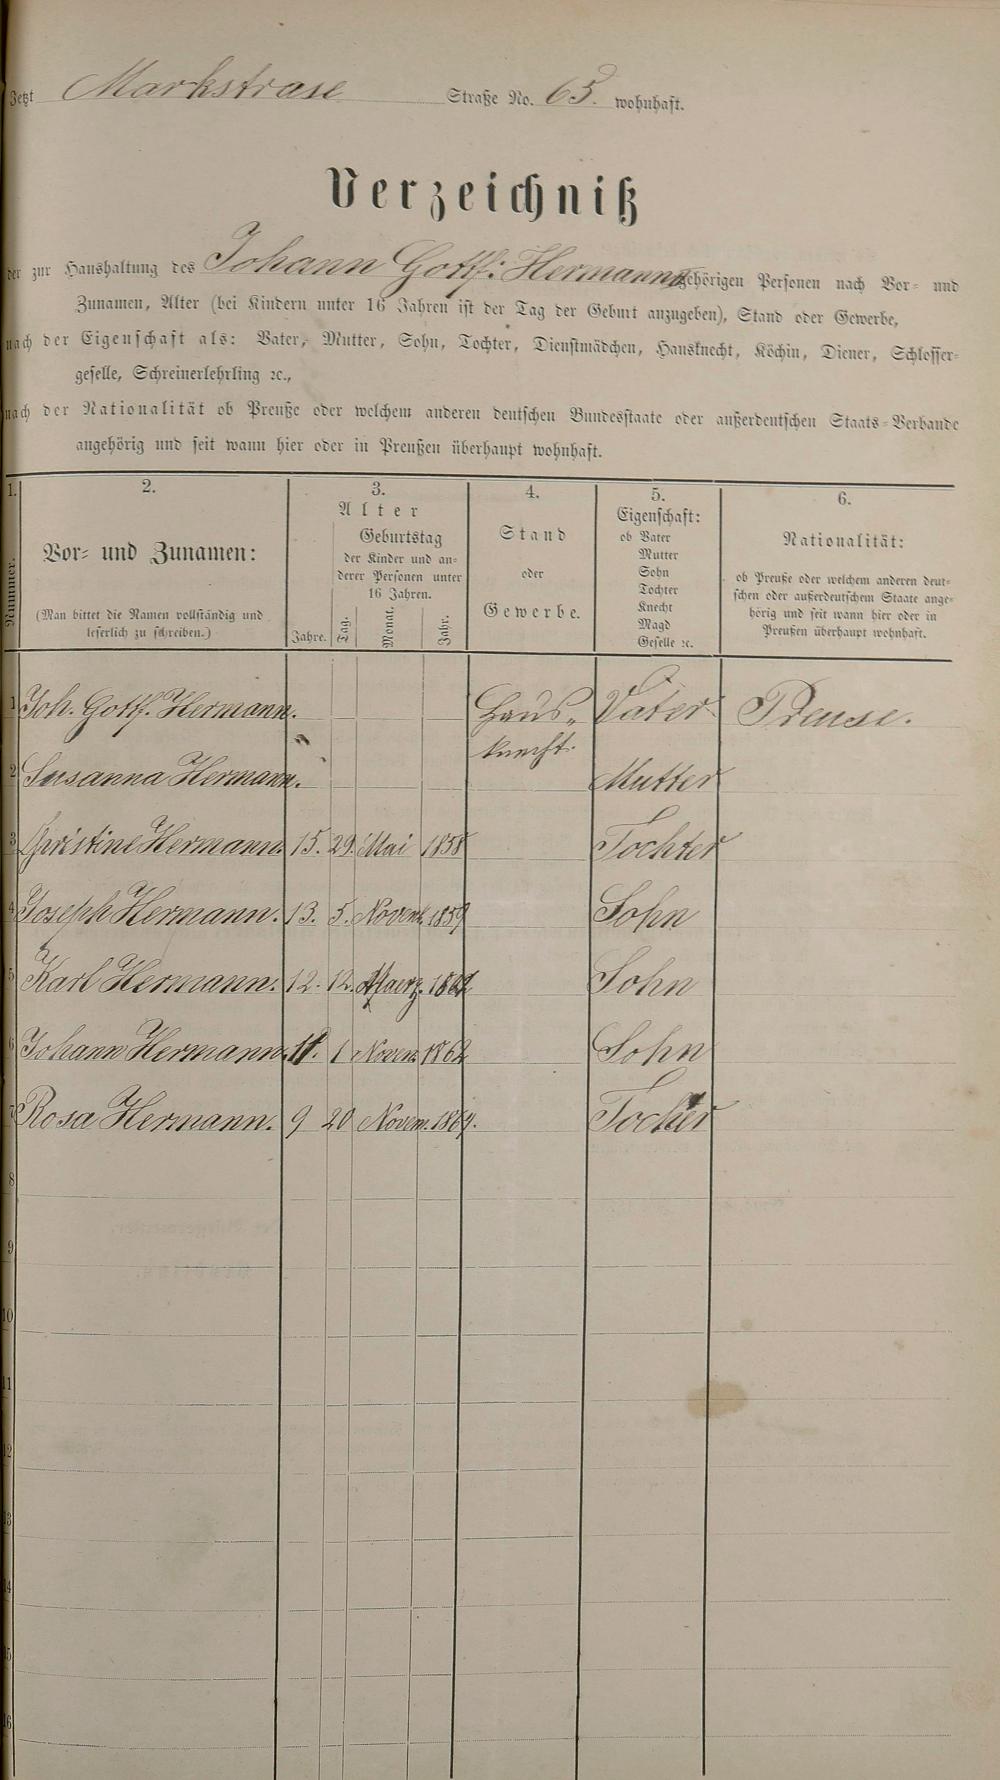 Jetzt Markstrase Straße No. 65. wohnhaft.
Verzeichniß
der zur Haushaltung des Johann Gottf: Hermann gehörigen Personen nach Vor- und
Zunamen, Alter (bei Kindern unter 16 Jahren ist der Tag der Geburt anzugeben), Stand oder Gewerbe,
nach der Eigenschaft als: Vater, Mutter, Sohn, Tochter, Dienstmädchen, Hausknecht, Köchin, Diener, Schlosser-
geselle, Schreinerlehrling ꝛc.,
nach der Nationalität ob Preuße oder welchem anderen deutschen Bundesstaate oder außerdeutschen Staats-Verbande
angehörig und seit wann hier oder in Preußen überhaupt wohnhaft.
1. 2. 3. 4. 5. 6.
Nummer.
Vor- und Zunamen:
(Man bittet die Namen vollständig und
leserlich zu schreiben.)
Alter
Jahre.
Geburtstag
der Kinder und an-
derer Personen unter
16 Jahren.
Tag. Monat. Jahr.
Stand
oder
Gewerbe.
Eigenschaft:
ob Vater
Mutter
Sohn
Tochter
Knecht
Magd
Geselle ꝛc.
Nationalität:
ob Preuße oder welchem anderen deut-
schen oder außerdeutschem Staate ange-
hörig und seit wann hier oder in
Preußen überhaupt wohnhaft.
1 Joh. Gottf. Hermann. Haus- Vater Preuse.
knecht.
2 Susanna Hermann. Mutter
3 Christine Hermann. 15. 29. Mai 1858 Tochter
4 Joseph Hermann. 13. 5. Novem. 1859 Sohn
5 Karl Hermann. 12. 12. Maerz. Sohn
6 Johann Hermann. 11. 1 Novem. 1862 Sohn
7 Rosa Hermann. 9 20 Novem. 1864. Tochter
8
9
10
11
12
13
14
15
16